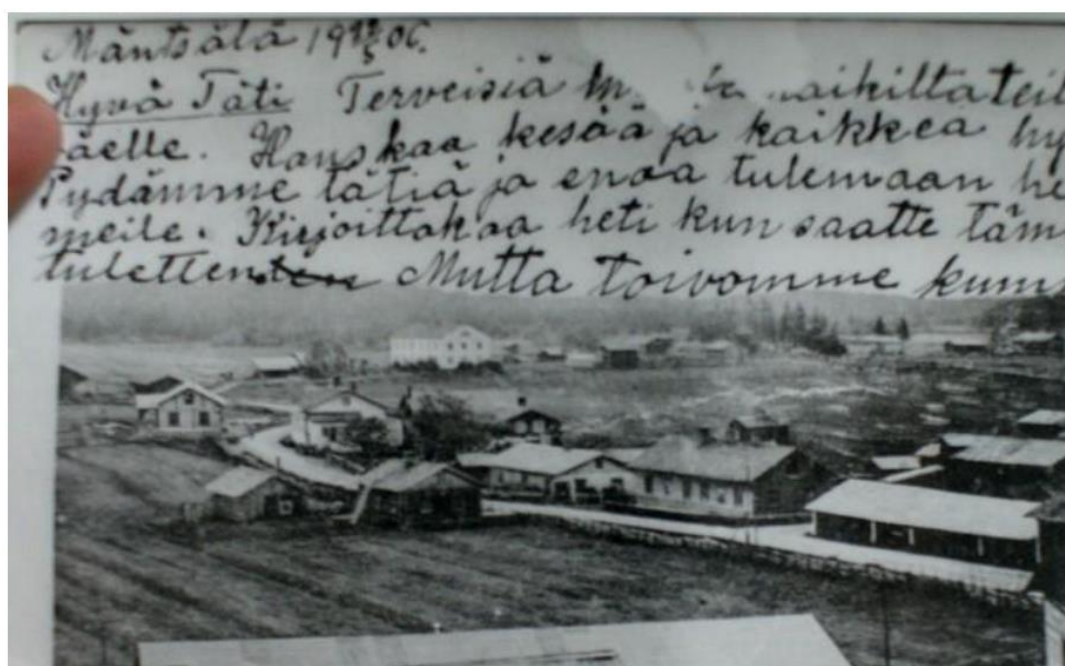 Mäntsälä 19 06.
Hyvä Täti Terveisiä
Hauskaa kesää ja kaikkea hy
Pydämme tätiä ja enoa tulemaan he
meile. Kirjoittakaa heti kun saatte täm
Mutta toivomme